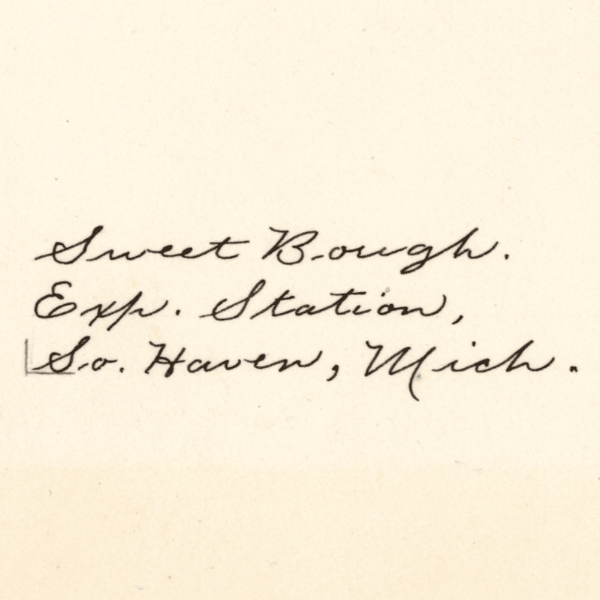 Sweet Bough.
Exp. Station,
So. Haven, Mich.